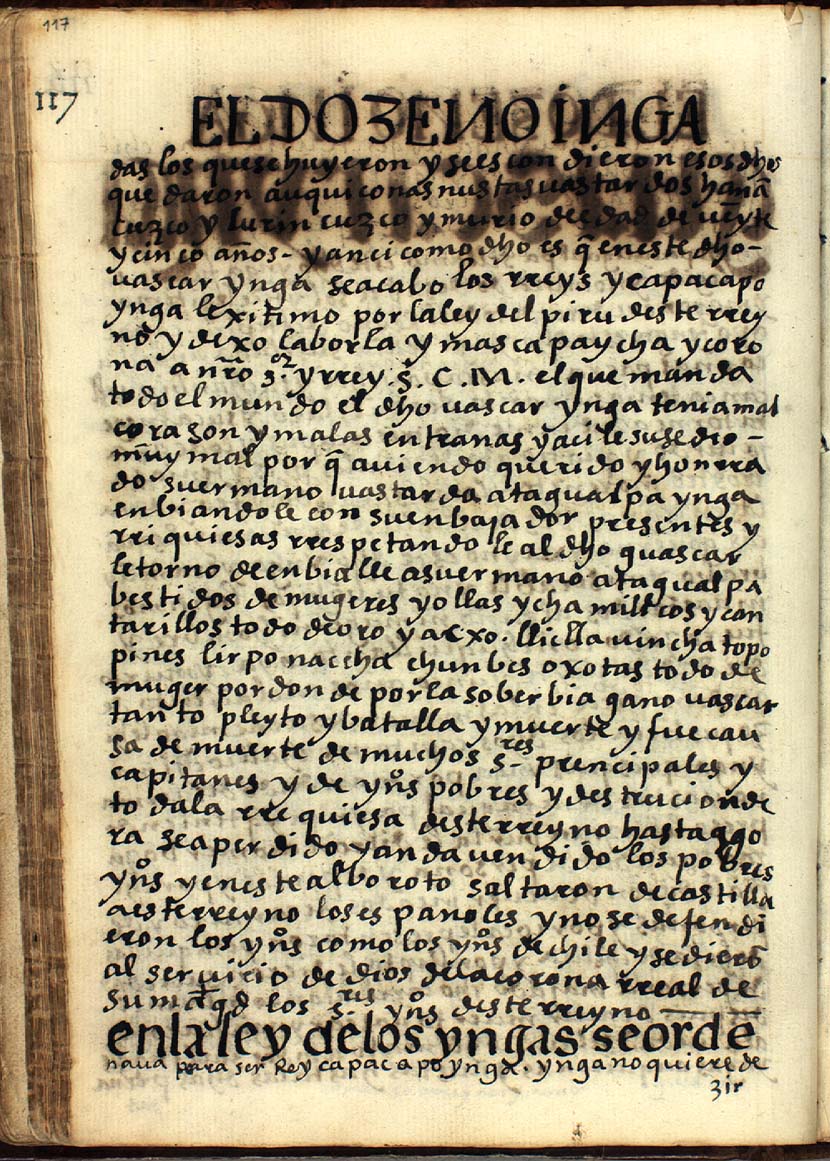 117
117
EL DOZENO INGA
das los que se huyeron y se escondieron esos dhos
quedaron auquiconas nustas uastardos hanā
cuzco y lurin cuzco y murio de edad de ueynte
y cinco años - y anci como dho es q̄ en este dho -
uascar ynga se acabo los rreys y capac apo
ynga lexitimo por la ley del piru deste rrey
no y dexo la borla y mascapaycha y coro
na a nr̄o s.or y rrey. S. C. M. el que manda
todo el mundo el dho uascar ynga tenia mal
corason y malas entranas y aci le susedio -
muy mal por q̄ auiendo querido y honrra
do su ermano uastardo atagualpa ynga
enbiandole con su enbajador presentes y
rriquiesas rrespetandole al dho guascar
le torno de enbialle a su ermano atagualpa
bestidos de mugeres y ollas y chamillcos y can
tarillos todo de oro y acxo. lliclla uincha topo
pines lirpo naccha chunbes oxotas todo de
muger por donde por la soberbia gano uascar
tanto pleyto y batalla y muerte y fue cau
sa de muerte de muchos s.res prencipales y
capitanes y de yn̊s pobres y destruciōn de
toda la rrequiesa deste rreyno hasta ago
ra se a perdido y anda uendido los pobres
yn̊s y en este alboroto saltaron de castilla
a este rreyno los espanoles y no se defendi
eron los yn̊s como los yn̊s de chile y se dierō
al seruicio de dios de la corona rreal de
su maḡd los s.res yn̊s deste rreyno —
en la ley de los yngas se orde
naua para ser Rey capac apo ynga. ynga no quiere de
zir